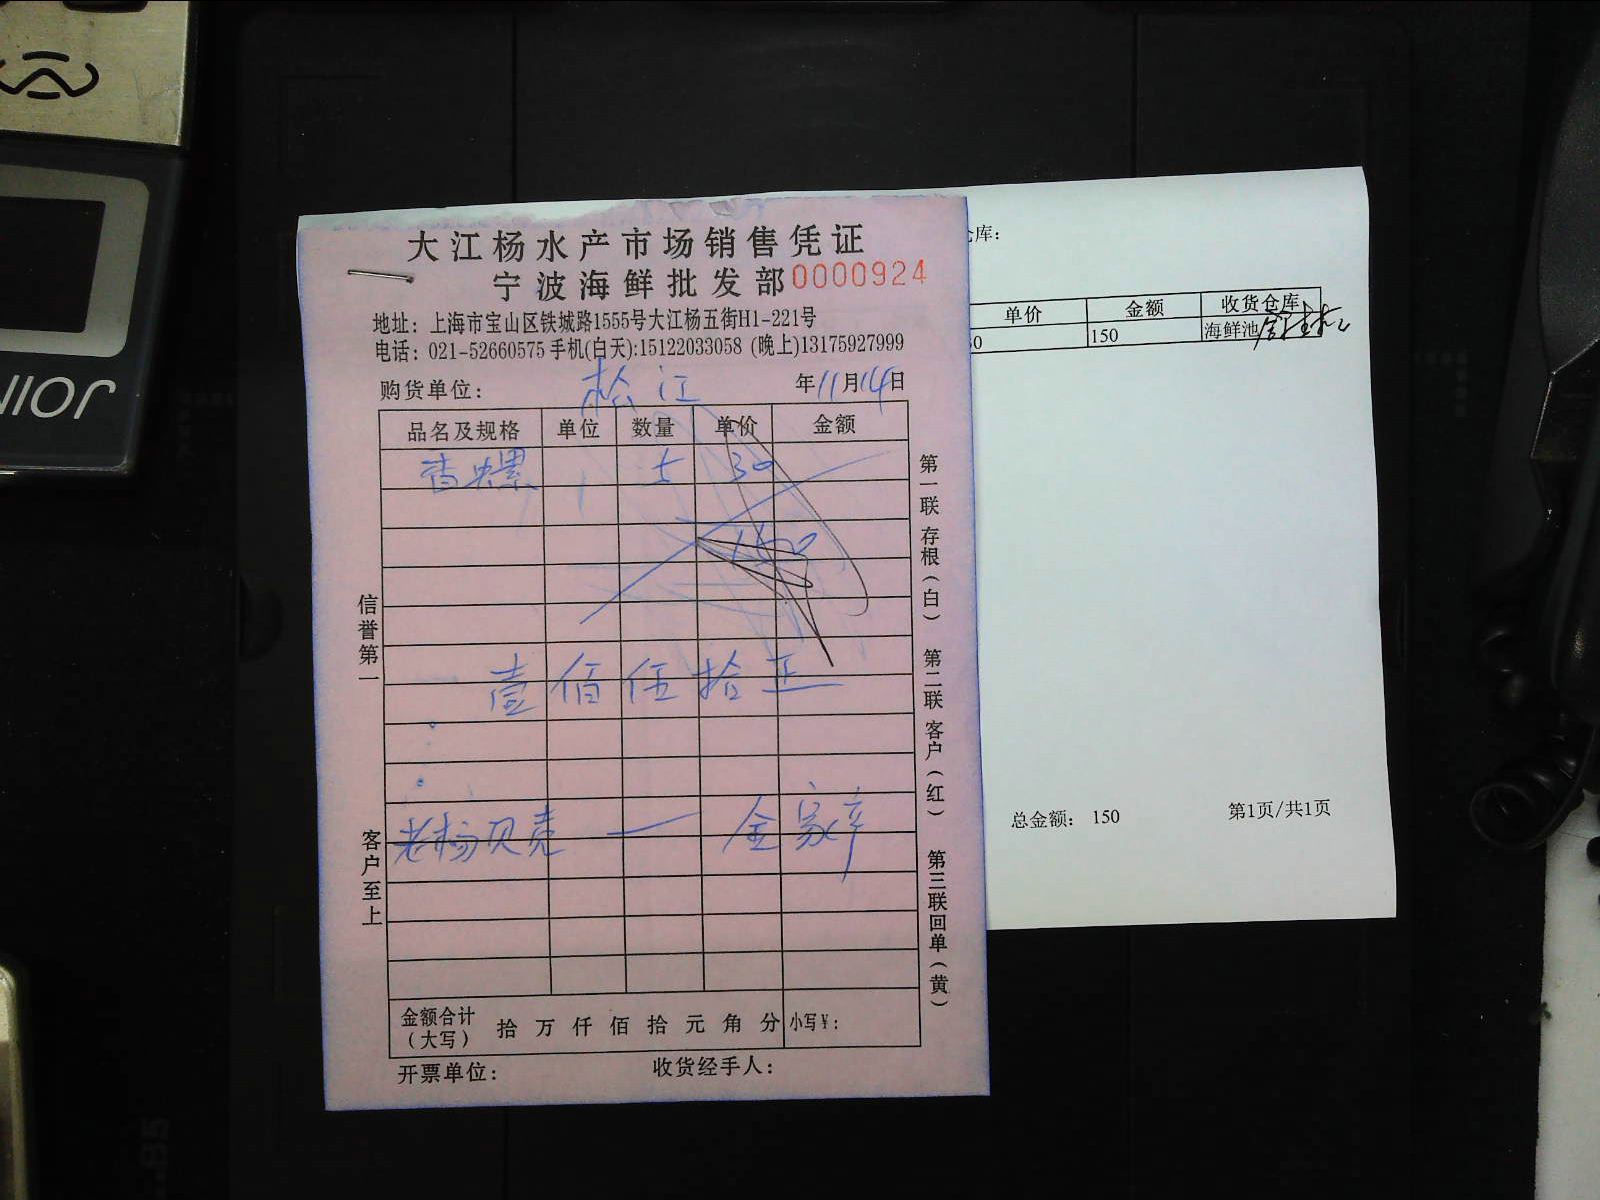 大江杨水产市场销售凭证
宁波海鲜批发部 0000924
地址：上海市宝山区铁城路1555号大江杨五街H1-221号
电话：021-52660575 手机(白天):15122033058 (晚上)13175927999
购货单位： 松江 年11月14日
品名及规格 单位 数量 单价 金额
香螺 5 30
150
壹佰伍拾正
老杨贝壳 — 金家
金额合计（大写） 拾 万 仟 佰 拾 元 角 分 小写¥：
开票单位： 收货经手人：
信誉第一
客户至上
第一联 存根（白） 第二联 客户（红） 第三联 回单（黄）
库：
单价 金额 收货仓库
0 150 海鲜池
总金额： 150 第1页/共1页
JOIN